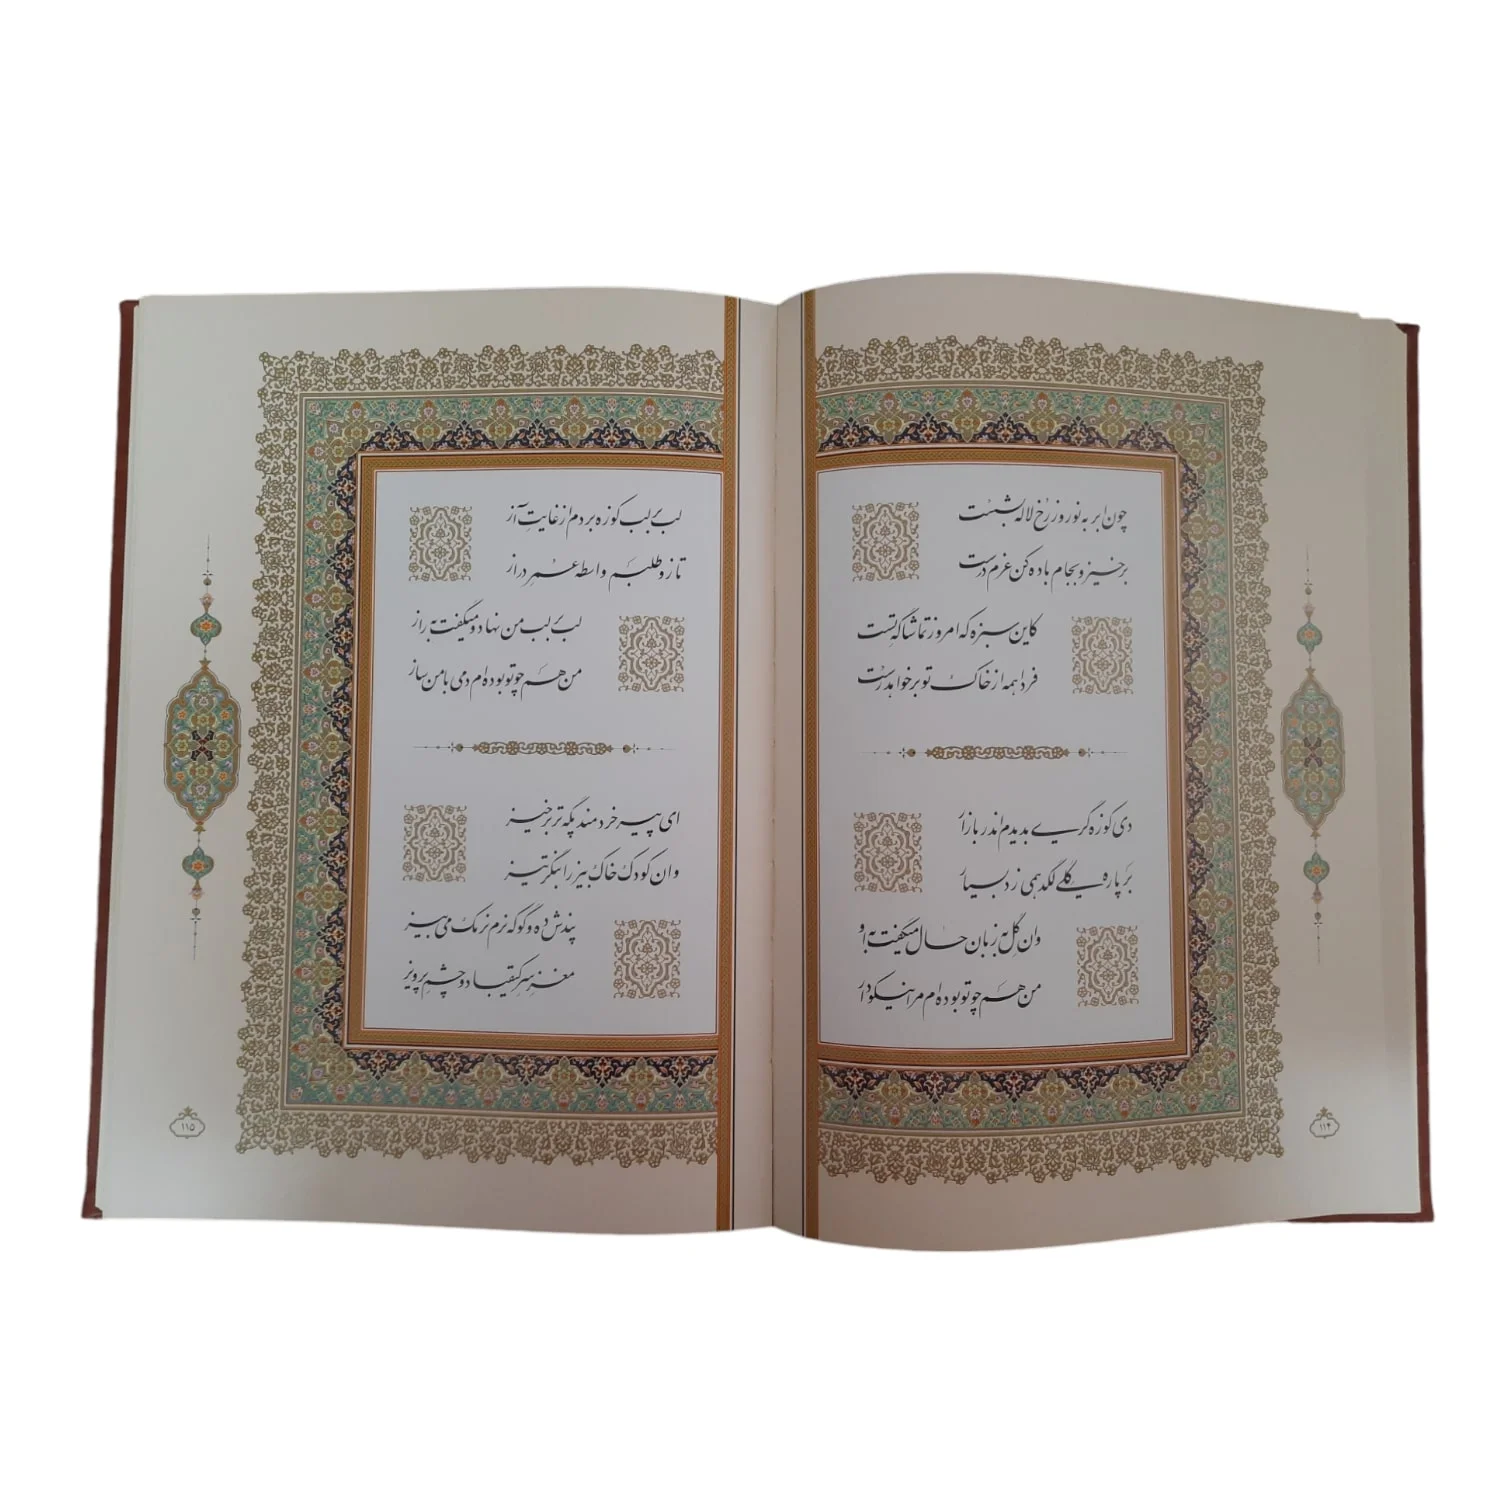 چون ابر به نوروز رخ لاله بشست
برخیز و بجام باده کن عزم درست
کاین سبزه که امروز تماشاگه تست
فردا همه از خاک تو برخواهد رست
دی کوزه گری بدیدم اندر بازار
بر پاره گلی لگد همی زد بسیار
وان گل به زبان حال میگفت به او
من هم چو تو بوده ام مرا نیکو دار
۱۱۴
لب بر لب کوزه بردم از غایت آز
تا زو طلبم واسطه عمر دراز
لب بر لب من نهاد و میگفت به راز
من هم چو تو بوده ام دمی با من ساز
ای پیر خردمند پگه تر برخیز
وان کودک خاک بیز را بنگر تیز
پندش ده و گو که نرم نرمک می بیز
مغز سر کیقباد و چشم پرویز
۱۱۵